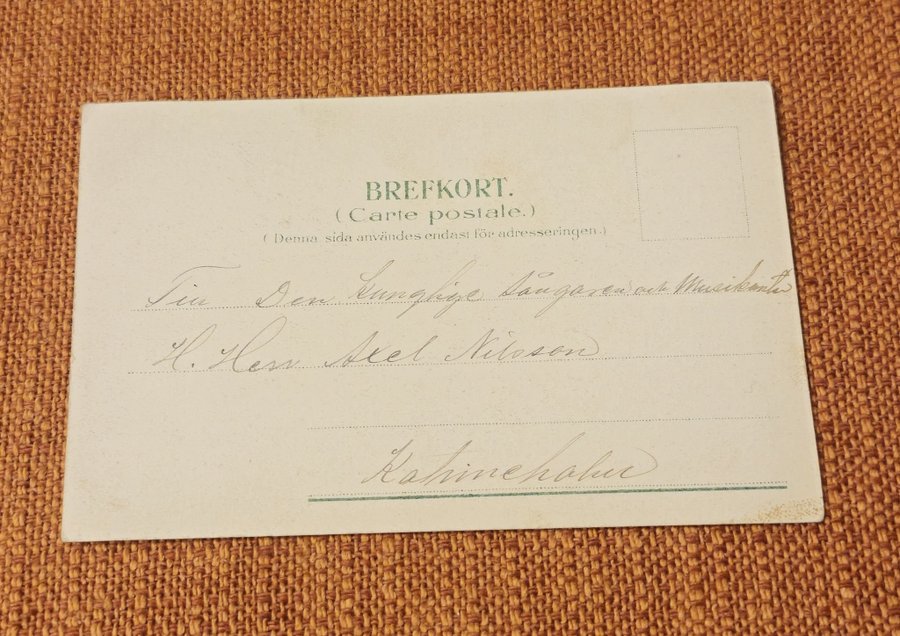 BREFKORT.
(Carte postale.)
(Denna sida användes endast för adresseringen.)
Till Den Kunglige Sångaren och Musikanten
H. Herr Axel Nilsson
Katrineholm